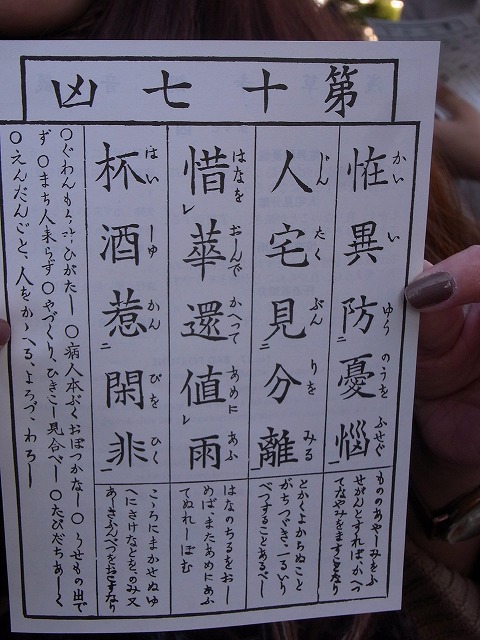 第十七凶
怪異防憂惱
かい い ゆうのうを ふせぐ
ものゝあやーみをふ
せがんとすれば、かへつ
てなやみをますことなり
人宅見分離
じん たく ぶん りを みる
とかくよからぬこと
がちつゞき、一るいり
べつすることあるべー
惜華還値雨
はなを おーんで かへつて あめに あふ
はなのちるをおー
めば、またあめにあふ
てぬれーぼむ
杯酒惹閑非
はい しゆ かん ぴを ひく
こゝろにまかせぬゆ
へにさけなどを、のみ又
あーきふんべつをおこすなり
○ぐわんもう叶ひがたー ○病人本ぶくおぼつかなー ○うせもの出で
ず ○まち人来らず ○やづくり、ひきこー見合べー ○たびだちあーく
○えんだんごと、人をかゝへる、よろづ、わろー